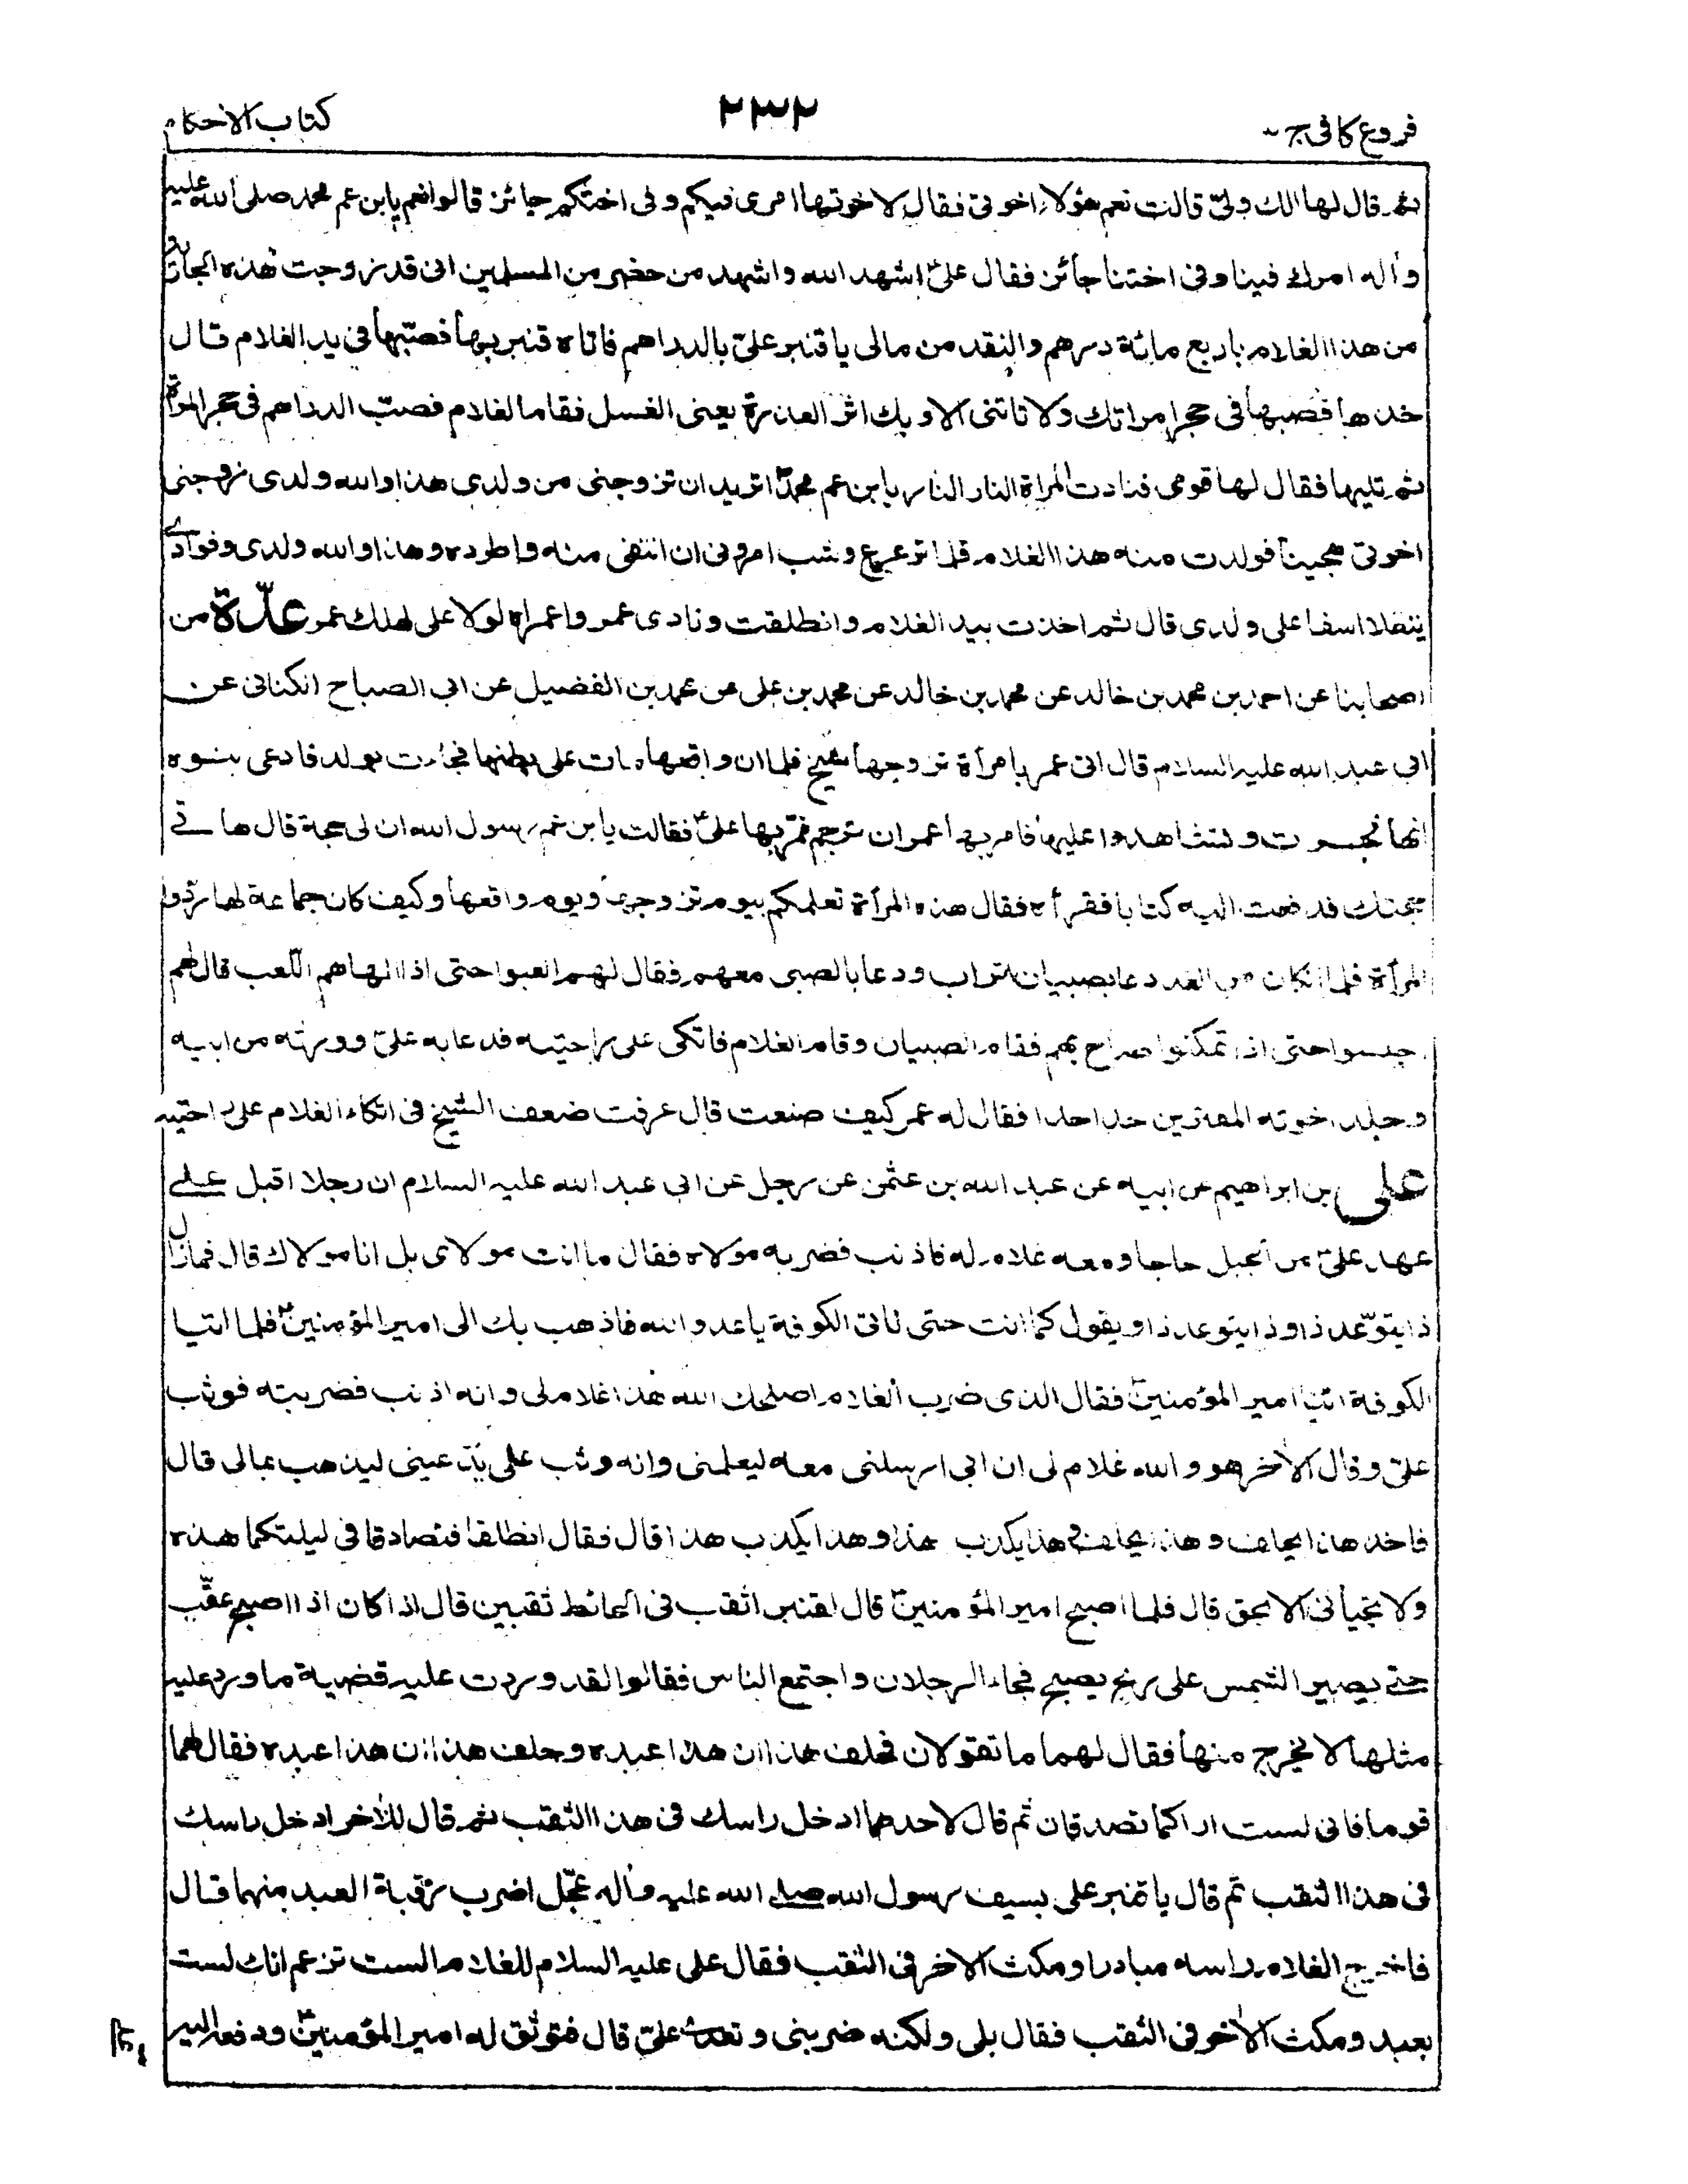 فروع كافى ج ٢٣٢ كتاب الاحكام
ثم قال لها الك ولىّ قالت نعم هؤلاء اخوتى فقال لاخوتها امرى فيكم وفى اختكم جائز قالوا نعم يا بن عم محمد صلى الله عليه
واٰله امرك فينا وفى اختنا جائز فقال علىّ ع اشهد الله واشهد من حضر من المسلمين انى قد زوجت هذه الجارية
من هذا الغلام باربع مائة درهم والنقد من مالى يا قنبر علىّ بالدراهم فاتاه قنبر بها فصبّها فى يد الغلام قال
خذها فصبها فى حجر امراتك ولا تاتنى الا وبك اثر العذرة يعنى الغسل فقام الغلام فصبّ الدراهم فى حجر المرأة
ثم تليها فقال لها قومى فنادت المراة النار النار يا بن عم محمّد اتريد ان تزوجنى من ولدى هذا والله ولدى زوجنى
اخوتى هجينا فولدت منه هذا الغلام فلما ترعرع وشب امرونى ان انتفى منه واطرده وهذا والله ولدى وفوادى
يتقلا اسفا على ولدى قال ثم اخذت بيد الغلام وانطلقت ونادى عمر واعمراه لولا على لهلك عمر عدّة من
اصحابنا عن احمد بن محمد بن خالد عن محمد بن خالد عن محمد بن على عن محمد بن الفضيل عن ابى الصباح الكنانى عن
ابى عبد الله عليه السلام قال اتى عمر بامرأة تزوجها شيخ فلما ان واقعها مات على بطنها فجاءت بولد فادعى بنوه
انها فجرت وتشاهدوا عليها فامر بها عمر ان ترجم فمرّ بها علىّ ع فقالت يا بن عم رسول الله ان لى حجة قال هاتى
حجتك فدفعت اليه كتابا فقرأه فقال هذه المرأة تعلمكم بيوم تزوجها ويوم واقعها وكيف كان جماعه لها ردّوا
المرأة فلما كان من الغد دعا بصبيان اتراب ودعا بالصبى معهم فقال لهم العبوا حتى اذا الهاهم اللّعب قال لهم
اجلسوا حتى اذا تمكنوا صاح بهم فقام الصبيان وقام الغلام فاتكى على راحتيه فدعا به علىّ وورثه من ابيه
وجلد اخوته المفترين حدا حدا فقال له عمر كيف صنعت قال عرفت ضعف الشيخ فى اتكاء الغلام على راحتيه
على بن ابراهيم عن ابيه عن عبد الله بن عثمن عن رجل عن ابى عبد الله عليه السلام ان رجلا اقبل على
عهد علىّ من الجبل حاجا ومعه غلام له فاذنب فضربه مولاه فقال ما انت بمولاى بل انا مولاك قال فما زال
ذا يتوعّد ذا وذا يتوعد ذا ويقول كما انت حتى ناتى الكوفة يا عدو الله فاذهب بك الى امير المؤمنين ع فلما اتيا
الكوفة اتيا امير المؤمنين ع فقال الذى ضرب الغلام اصلحك الله هذا غلام لى وانه اذنب فضربته فوثب
علىّ وقال الاٰخر هو والله غلام لى ان ابى ارسلنى معه ليعلمنى وانه وثب على يدّعينى ليذهب بمالى قال
فاخذ هذا يحلف وهذا يحلف وهذا يكذب هذا وهذا يكذب هذا قال فقال انطلقا فتصادقا فى ليلتكما هذه
ولا تجيأنى الا بحق قال فلما اصبح امير المؤمنين ع قال لقنبر اثقب فى الحائط ثقبين قال اذا كان اذا اصبح عقّب
حتى يصير الشمس على رمح يصبح فجاء الرجلان واجتمع الناس فقالوا لقد وردت عليه قضية ما ورد عليه
مثلها لا يخرج منها فقال لهما ما تقولان فحلف هذا ان هذا عبده وحلف هذا ان هذا عبده فقال لهما
قوما فانى لست اراكما تصدقان ثم قال لاحدهما ادخل راسك فى هذا الثقب ثم قال للاٰخر ادخل راسك
فى هذا الثقب ثم قال يا قنبر على بسيف رسول الله صلى الله عليه واٰله عجّل اضرب رقبة العبد منهما قال
فاخرج الغلام راسه مبادرا ومكث الاخر فى الثقب فقال على عليه السلام للغلام الست تزعم انك لست
بعبد ومكث الاٰخر فى الثقب فقال بلى ولكنه ضربنى وتعدى علىّ قال فتوثق له امير المؤمنين ع ودفعه اليه